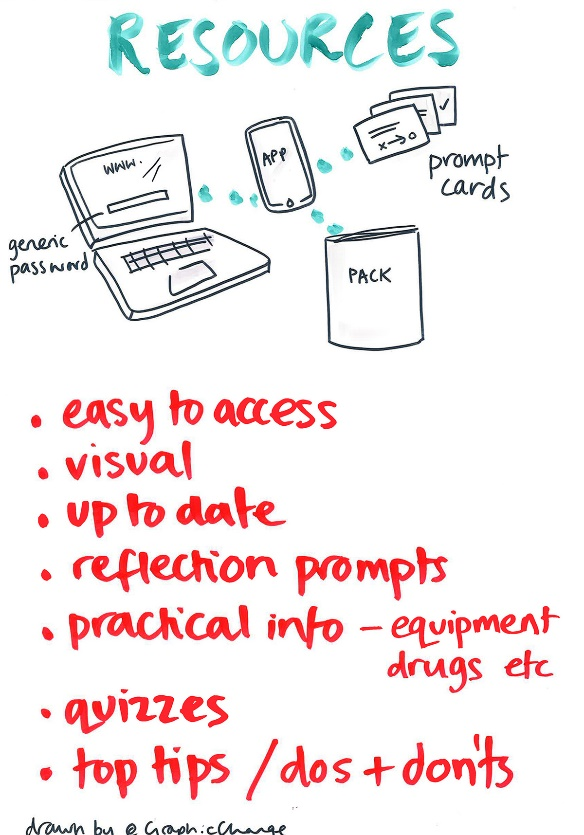 RESOURCES
www.
APP
prompt
cards
generic
password
PACK
• easy to access
• visual
• up to date
• reflection prompts
• practical info – equipment
drugs etc
• quizzes
• top tips / dos + don'ts
drawn by @GraphicChange